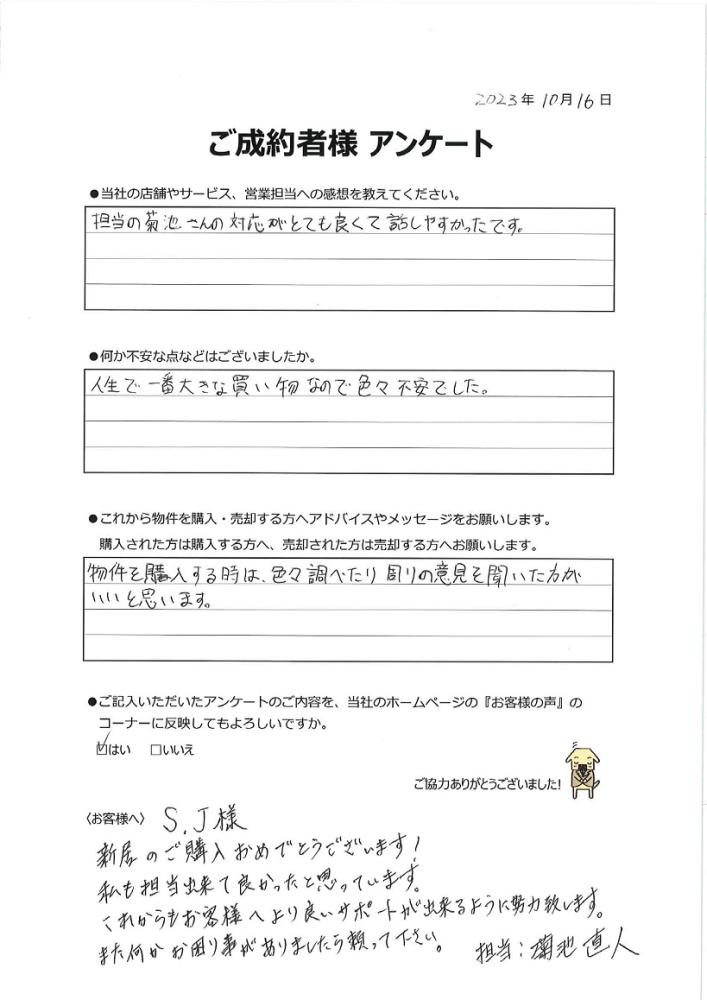 2023年10月16日
ご成約者様 アンケート
●当社の店舗やサービス、営業担当への感想を教えてください。
担当の菊池さんの対応がとても良くて話しやすかったです。
●何か不安な点などはございましたか。
人生で一番大きな買い物なので色々不安でした。
●これから物件を購入・売却する方へアドバイスやメッセージをお願いします。
購入された方は購入する方へ、売却された方は売却する方へお願いします。
物件を購入する時は、色々調べたり周りの意見を聞いた方が
いいと思います。
●ご記入いただいたアンケートのご内容を、当社のホームページの『お客様の声』の
コーナーに反映してもよろしいですか。
☑はい □いいえ
ご協力ありがとうございました!
〈お客様へ〉 S.J様
新居のご購入おめでとうございます!
私も担当出来て良かったと思っています。
これからもお客様へより良いサポートが出来るように努力致します。
また何かお困り事がありましたら頼って下さい。 担当:菊池直人